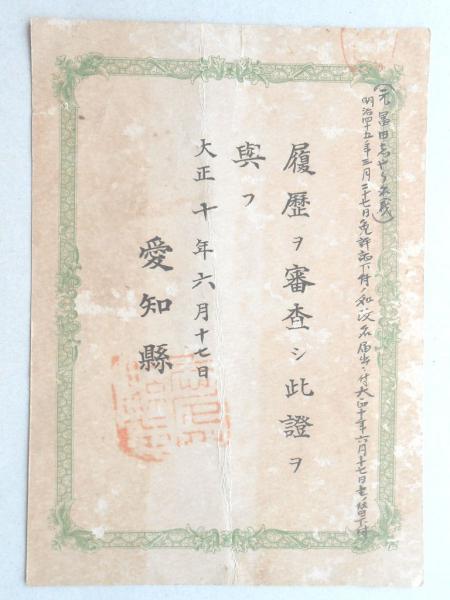 (元 冨田志やう
明治四十五年三月二十七日免許証下付ノ処改名届出ニ付大正十年六月十七日書換下付
履歴ヲ審査シ此證ヲ
與フ
大正十年六月十七日
愛知縣